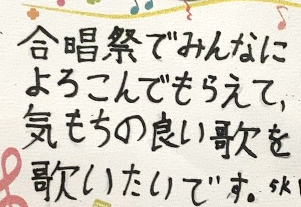 合唱祭でみんなに
よろこんでもらえて,
気もちの良い歌を
歌いたいです。SK